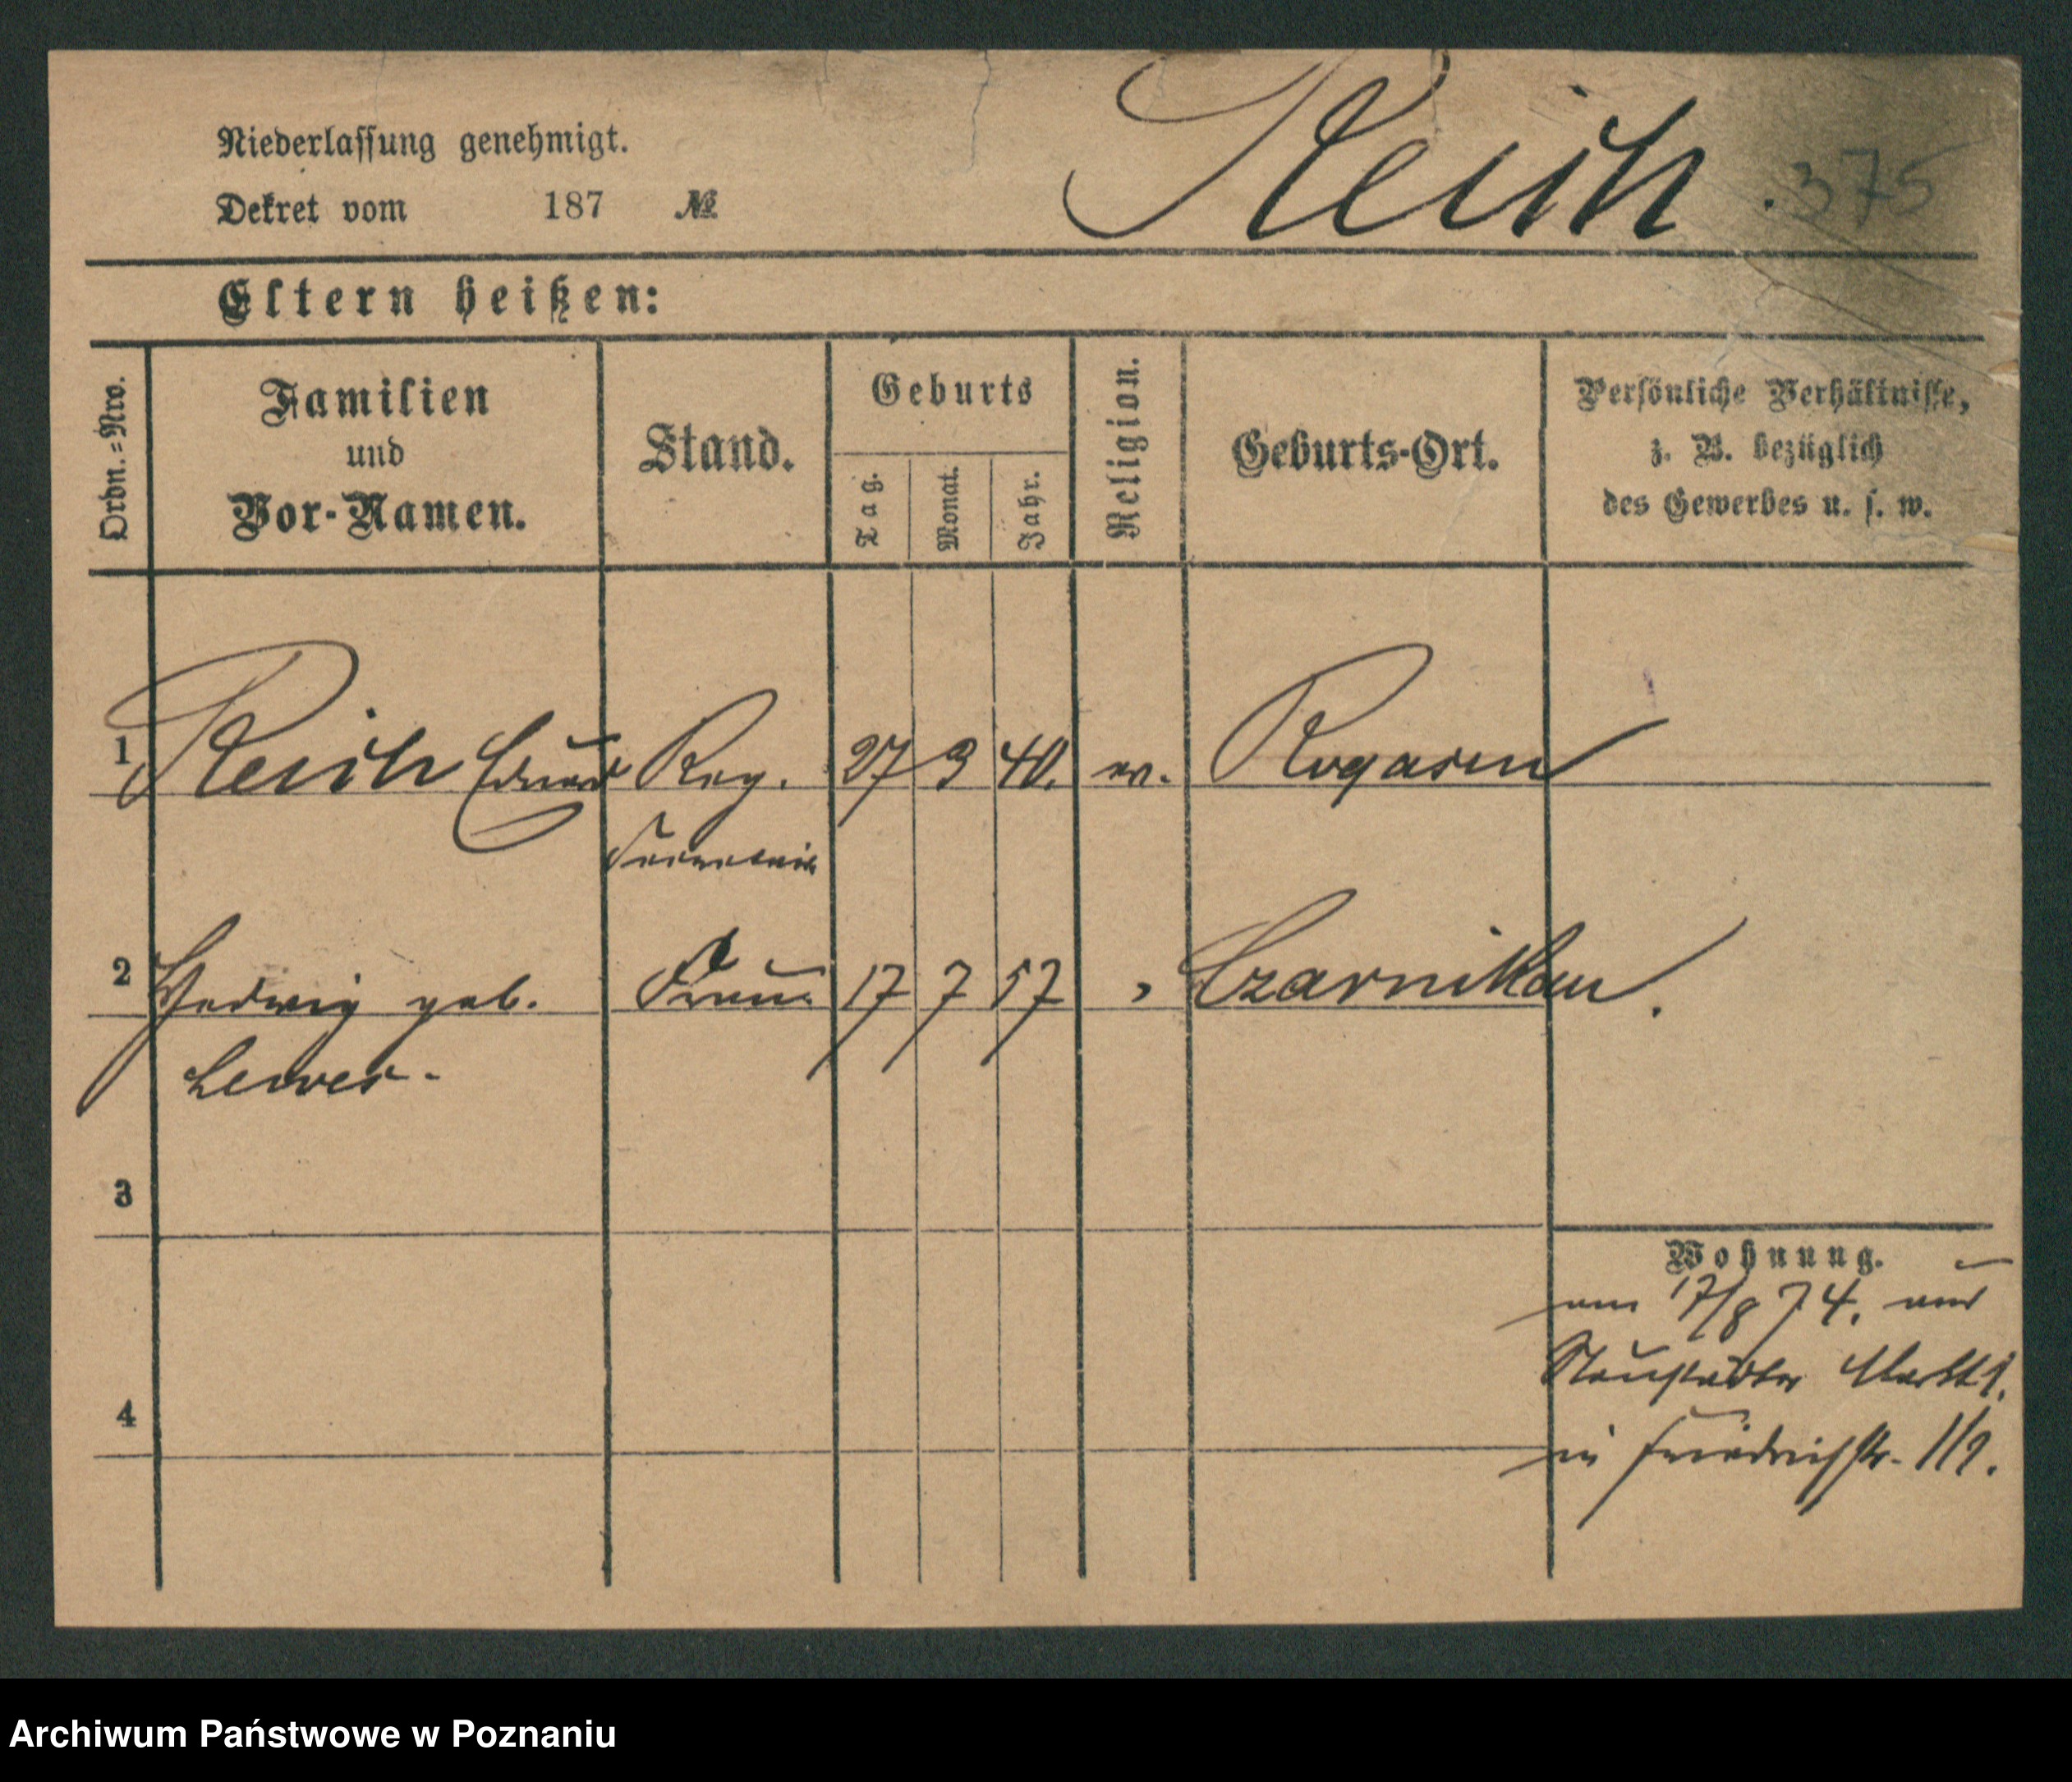 Niederlassung genehmigt.
Reich. 375
Dekret vom 187 №
Eltern heißen:
Ordn.=Nro.
Familien
und
Vor-Namen.
Stand.
Geburts
Tag.
Monat.
Jahr.
Religion.
Geburts-Ort.
Persönliche Verhältnisse,
z. B. bezüglich
des Gewerbes u. s. w.
1 Reich Eduard Reg. 27 3 40. ev. Rogasen
Secretair
2 Hedwig geb. Frau 17 7 57 " Czarnikau.
3
Wohnung.
am 17/8 74. aus
Neustädter Markt
4
in Friedrichstr.
Archiwum Państwowe w Poznaniu